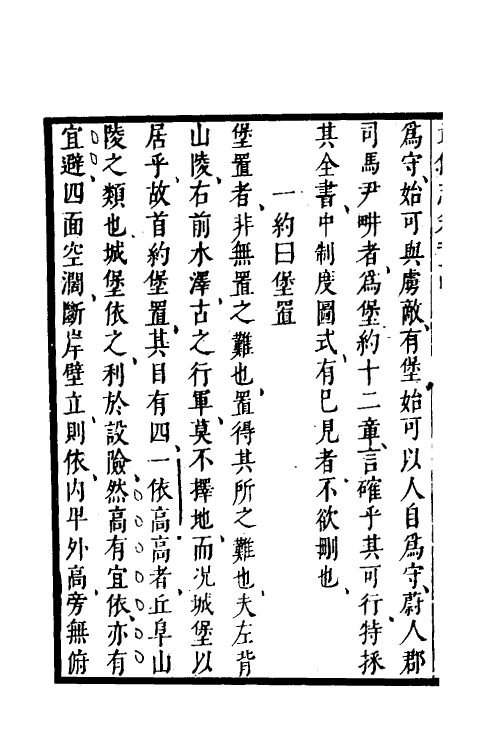 爲守始可與虜敵有堡始可以人自爲守蔚人郡
司馬尹畊者爲堡約十二章言確乎其可行特採
其全書中制度圖式有已見者不欲刪也
一約曰堡置
堡置者非無置之難也置得其所之難也夫左背
山陵右前水澤古之行軍莫不擇地而况城堡以
居乎故首約堡置其目有四一依高高者丘阜山
陵之類也城堡依之利於設險然高有宜依亦有
宜避四面空濶斷岸壁立則依内卑外高旁無俯